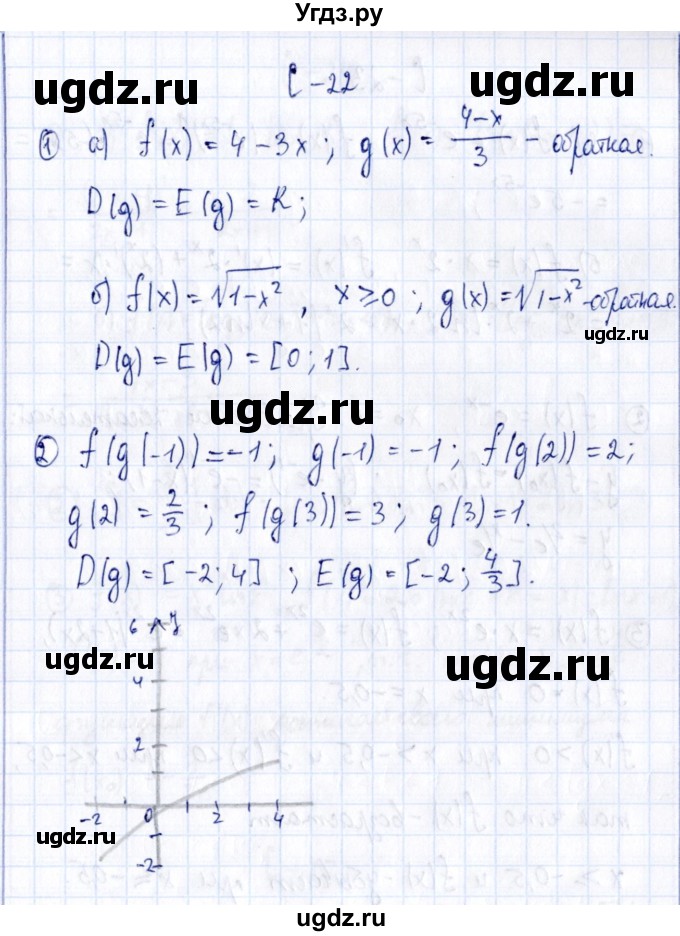 Угдз.ру
ugdz.ru ugdz.ru
С-22
① а) f(x) = 4 - 3x ; g(x) = (4-x)/3 - обратная.
D(g) = E(g) = R;
ugdz.ru
б) f(x) = √(1-x²) , x ≥ 0 ; g(x) = √(1-x²) - обратная.
ugdz.ru
D(g) = E(g) = [0; 1].
ugdz.ru
② f(g(-1)) = -1; g(-1) = -1; f(g(2)) = 2;
ugdz.ru
g(2) = 2/3 ; f(g(3)) = 3; g(3) = 1.
D(g) = [-2; 4] ; E(g) = [-2; 4/3].
6 y
ugdz.ru ugdz.ru
4
2
-2 0 2 4
ugdz.ru
-2
ugdz.ru
ugdz.ru